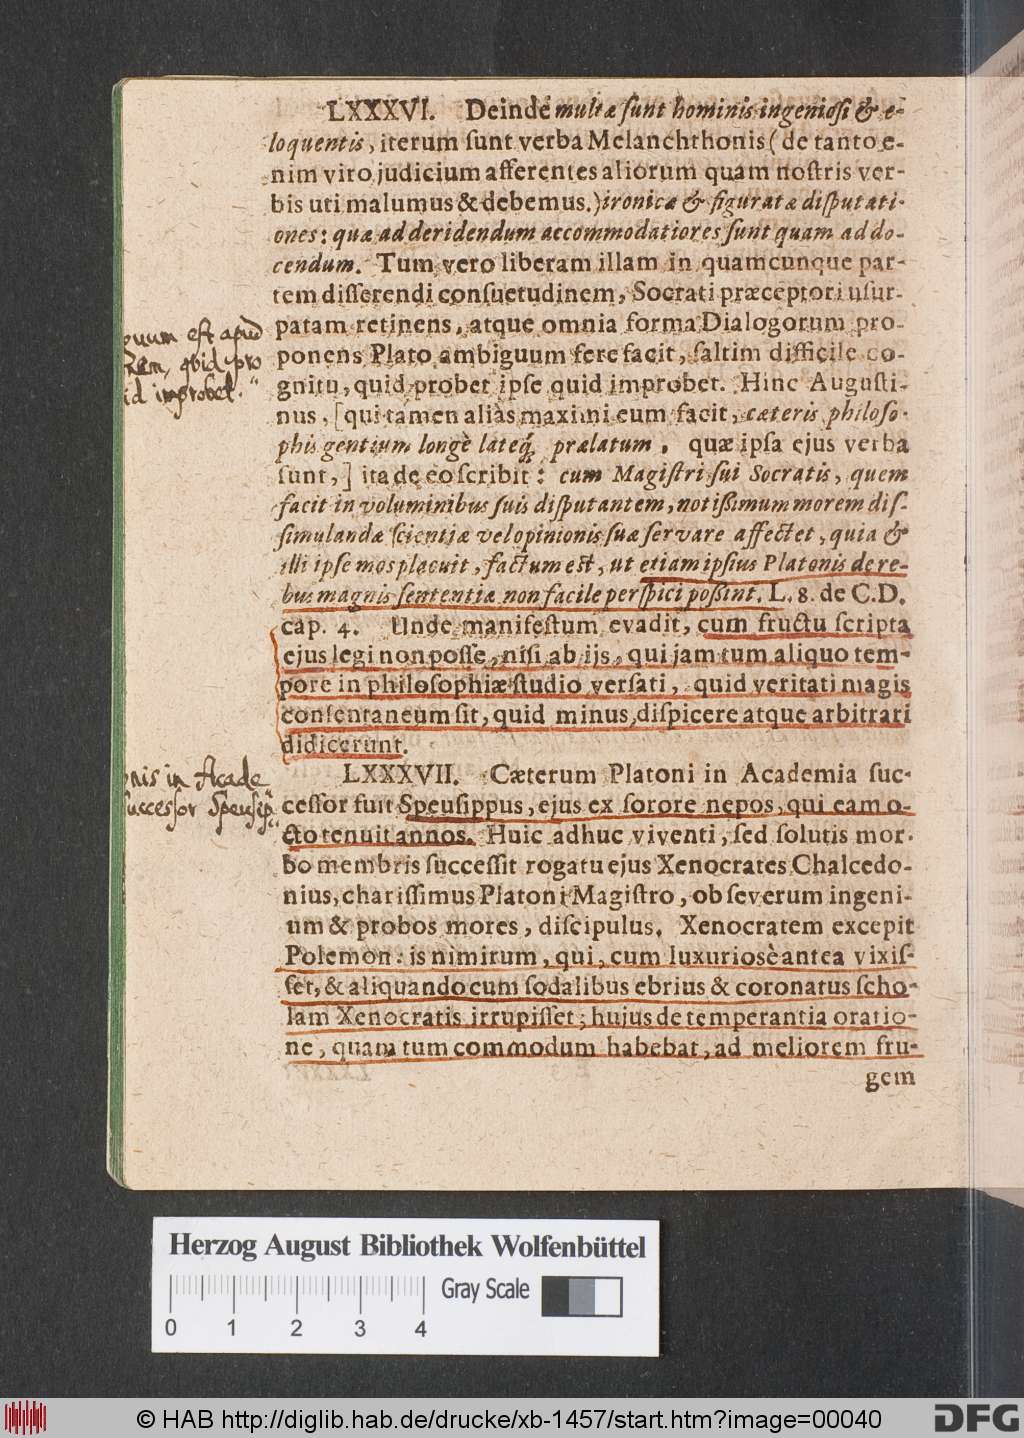 LXXXVI. Deinde multæ ſunt hominis ingenioſi & e-
loquentis, iterum ſunt verba Melanchthonis (de tanto e-
nim viro judicium afferentes aliorum quam noſtris ver-
bis uti malumus & debemus.) ironicæ & figuratæ diſputati-
ones: quæ ad deridendum accommodatiores ſunt quam ad do-
cendum. Tum vero liberam illam in quamcunque par-
tem diſſerendi conſuetudinem, Socrati præceptori uſur-
patam retinens, atque omnia forma Dialogorum pro-
ponens Plato ambiguum fere facit, ſaltim difficile co-
gnitu, quid probet ipſe quid improbet. Hinc Auguſti-
nus, [qui tamen aliàs maximi eum facit, cæteris philoſo-
phis gentium longè lateq́; prælatum, quæ ipſa ejus verba
ſunt,] ita de eo ſcribit: cum Magiſtri ſui Socratis, quem
facit in voluminibus ſuis diſputantem, notiſſimum morem diſ-
ſimulandæ ſcientiæ vel opinionis ſuæ ſervare affectet, quia &
illi ipſe mos placuit, factum est, ut etiam ipſius Platonis de re-
bus magnis ſententiæ non facile perſpici poſſint. L. 8. de C.D.
cap. 4. Unde manifeſtum evadit, cum fructu ſcripta
ejus legi non poſſe, niſi ab ijs, qui jam tum aliquo tem-
pore in philoſophiæ ſtudio verſati, quid veritati magis
conſentaneum ſit, quid minus, diſpicere atque arbitrari
didicerunt.
guum eſt apud
quid pro
id improbet."
LXXXVII. Cæterum Platoni in Academia ſuc-
ceſſor fuit Speuſippus, ejus ex ſorore nepos, qui eam o-
cto tenuit annos. Huic adhuc viventi, ſed ſolutis mor-
bo membris ſucceſſit rogatu ejus Xenocrates Chalcedo-
nius, chariſſimus Platoni Magiſtro, ob ſeverum ingeni-
um & probos mores, diſcipulus. Xenocratem excepit
Polemon: is nimirum, qui, cum luxurioſè antea vixiſ-
ſet, & aliquando cum ſodalibus ebrius & coronatus ſcho-
lam Xenocratis irrupiſſet; hujus de temperantia oratio-
ne, quam tum commodum habebat, ad meliorem fru-
gem
nis in Acade
ſucceſſor Speuſip
Herzog August Bibliothek Wolfenbüttel
Gray Scale
0 1 2 3 4
© HAB http://diglib.hab.de/drucke/xb-1457/start.htm?image=00040
DFG